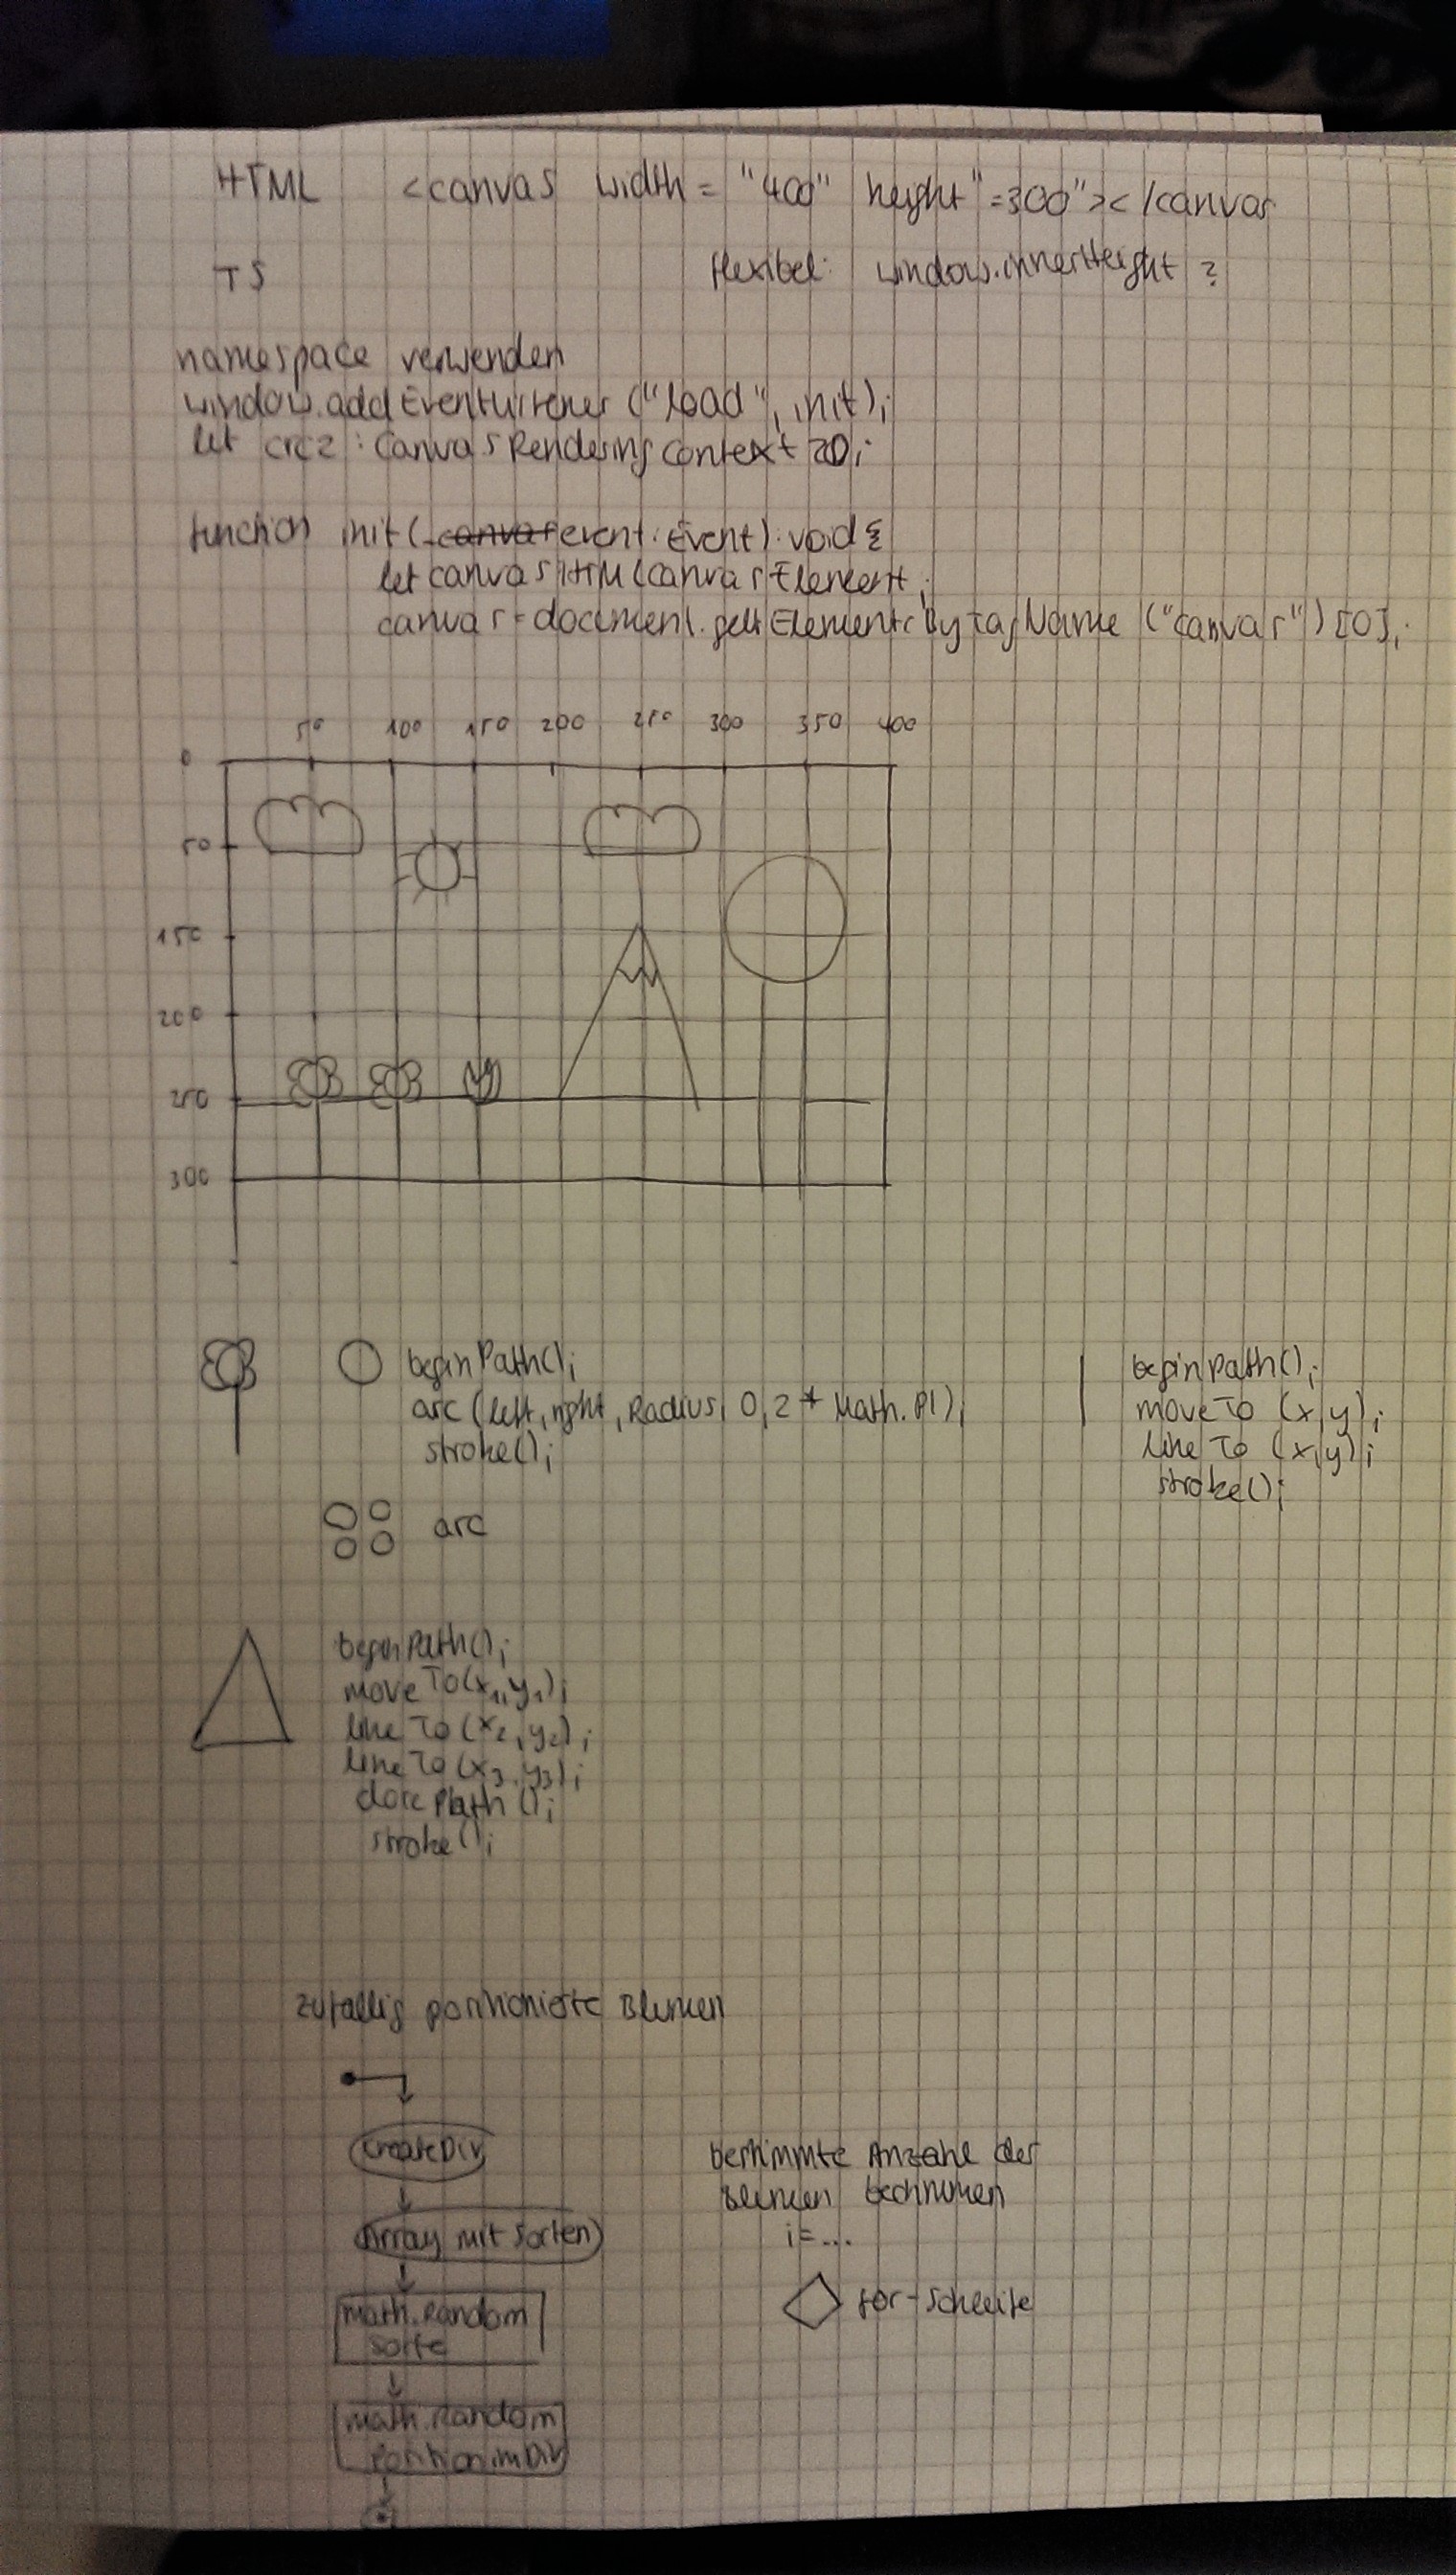 HTML <canvas width = "400" height"=300"></canvas
TS flexibel: window.innerHeight ?
namespace verwenden
window.addEventListener ("load", init);
let crc2 : CanvasRenderingContext2D;
function init(canvas event: Event): void {
let canvas HTMLCanvasElement;
canvas = document.getElementsByTagName ("canvas") [0];
50 100 150 200 250 300 350 400
0
50
150
200
250
300
beginPath();
arc (left, right, Radius, 0, 2 * Math.PI);
stroke();
beginPath();
moveTo (x,y);
lineTo (x,y);
stroke();
arc
beginPath();
moveTo(x1,y1);
lineTo (x2,y2);
lineTo (x3,y3);
closePath ();
stroke();
zufällig positionierte Blumen
createDiv
Array mit Sorten
math.Random
Sorte
math.Random
Position im Div
bestimmte Anzahl der
Blumen bestimmen
i=...
for-Schleife